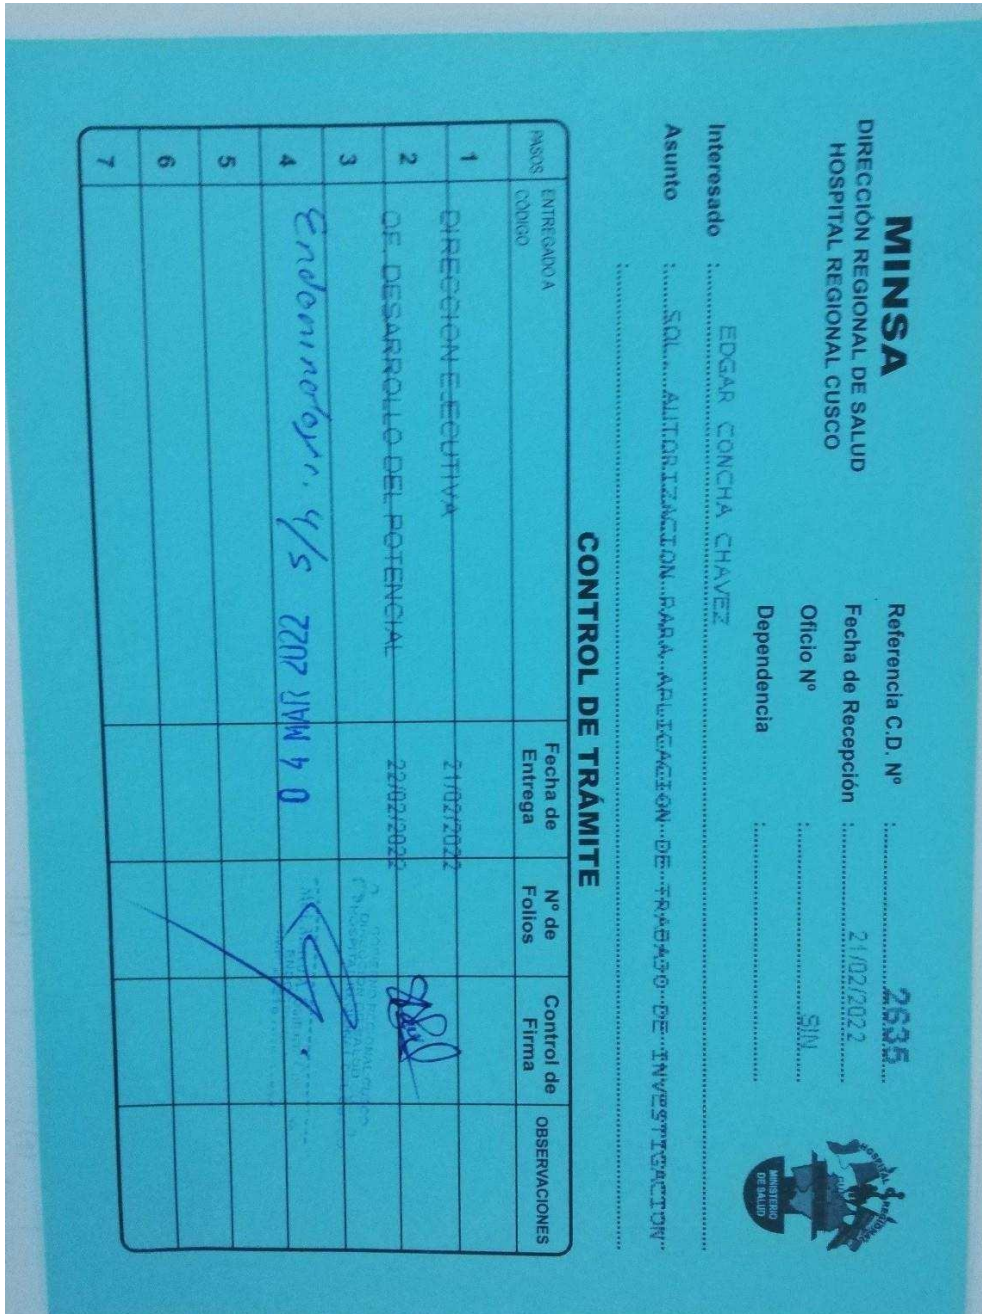 MINSA
DIRECCIÓN REGIONAL DE SALUD
HOSPITAL REGIONAL CUSCO
Referencia C.D. Nº : 2635
Fecha de Recepción : 21/02/2022
Oficio Nº : SIN
Dependencia :
HOSPITAL REGIONAL
MINISTERIO
DE SALUD
Interesado : EDGAR CONCHA CHAVEZ
Asunto : SOL. AUTORIZACION PARA APLICACION DE TRABAJO DE INVESTIGACION
CONTROL DE TRÁMITE
PASOS ENTREGADO A CÓDIGO Fecha de Entrega Nº de Folios Control de Firma OBSERVACIONES
1 DIRECCION EJECUTIVA 21/02/2022
2 OF. DESARROLLO DEL POTENCIAL 22/02/2022
3
4 04 MAR 2022
5
6
7